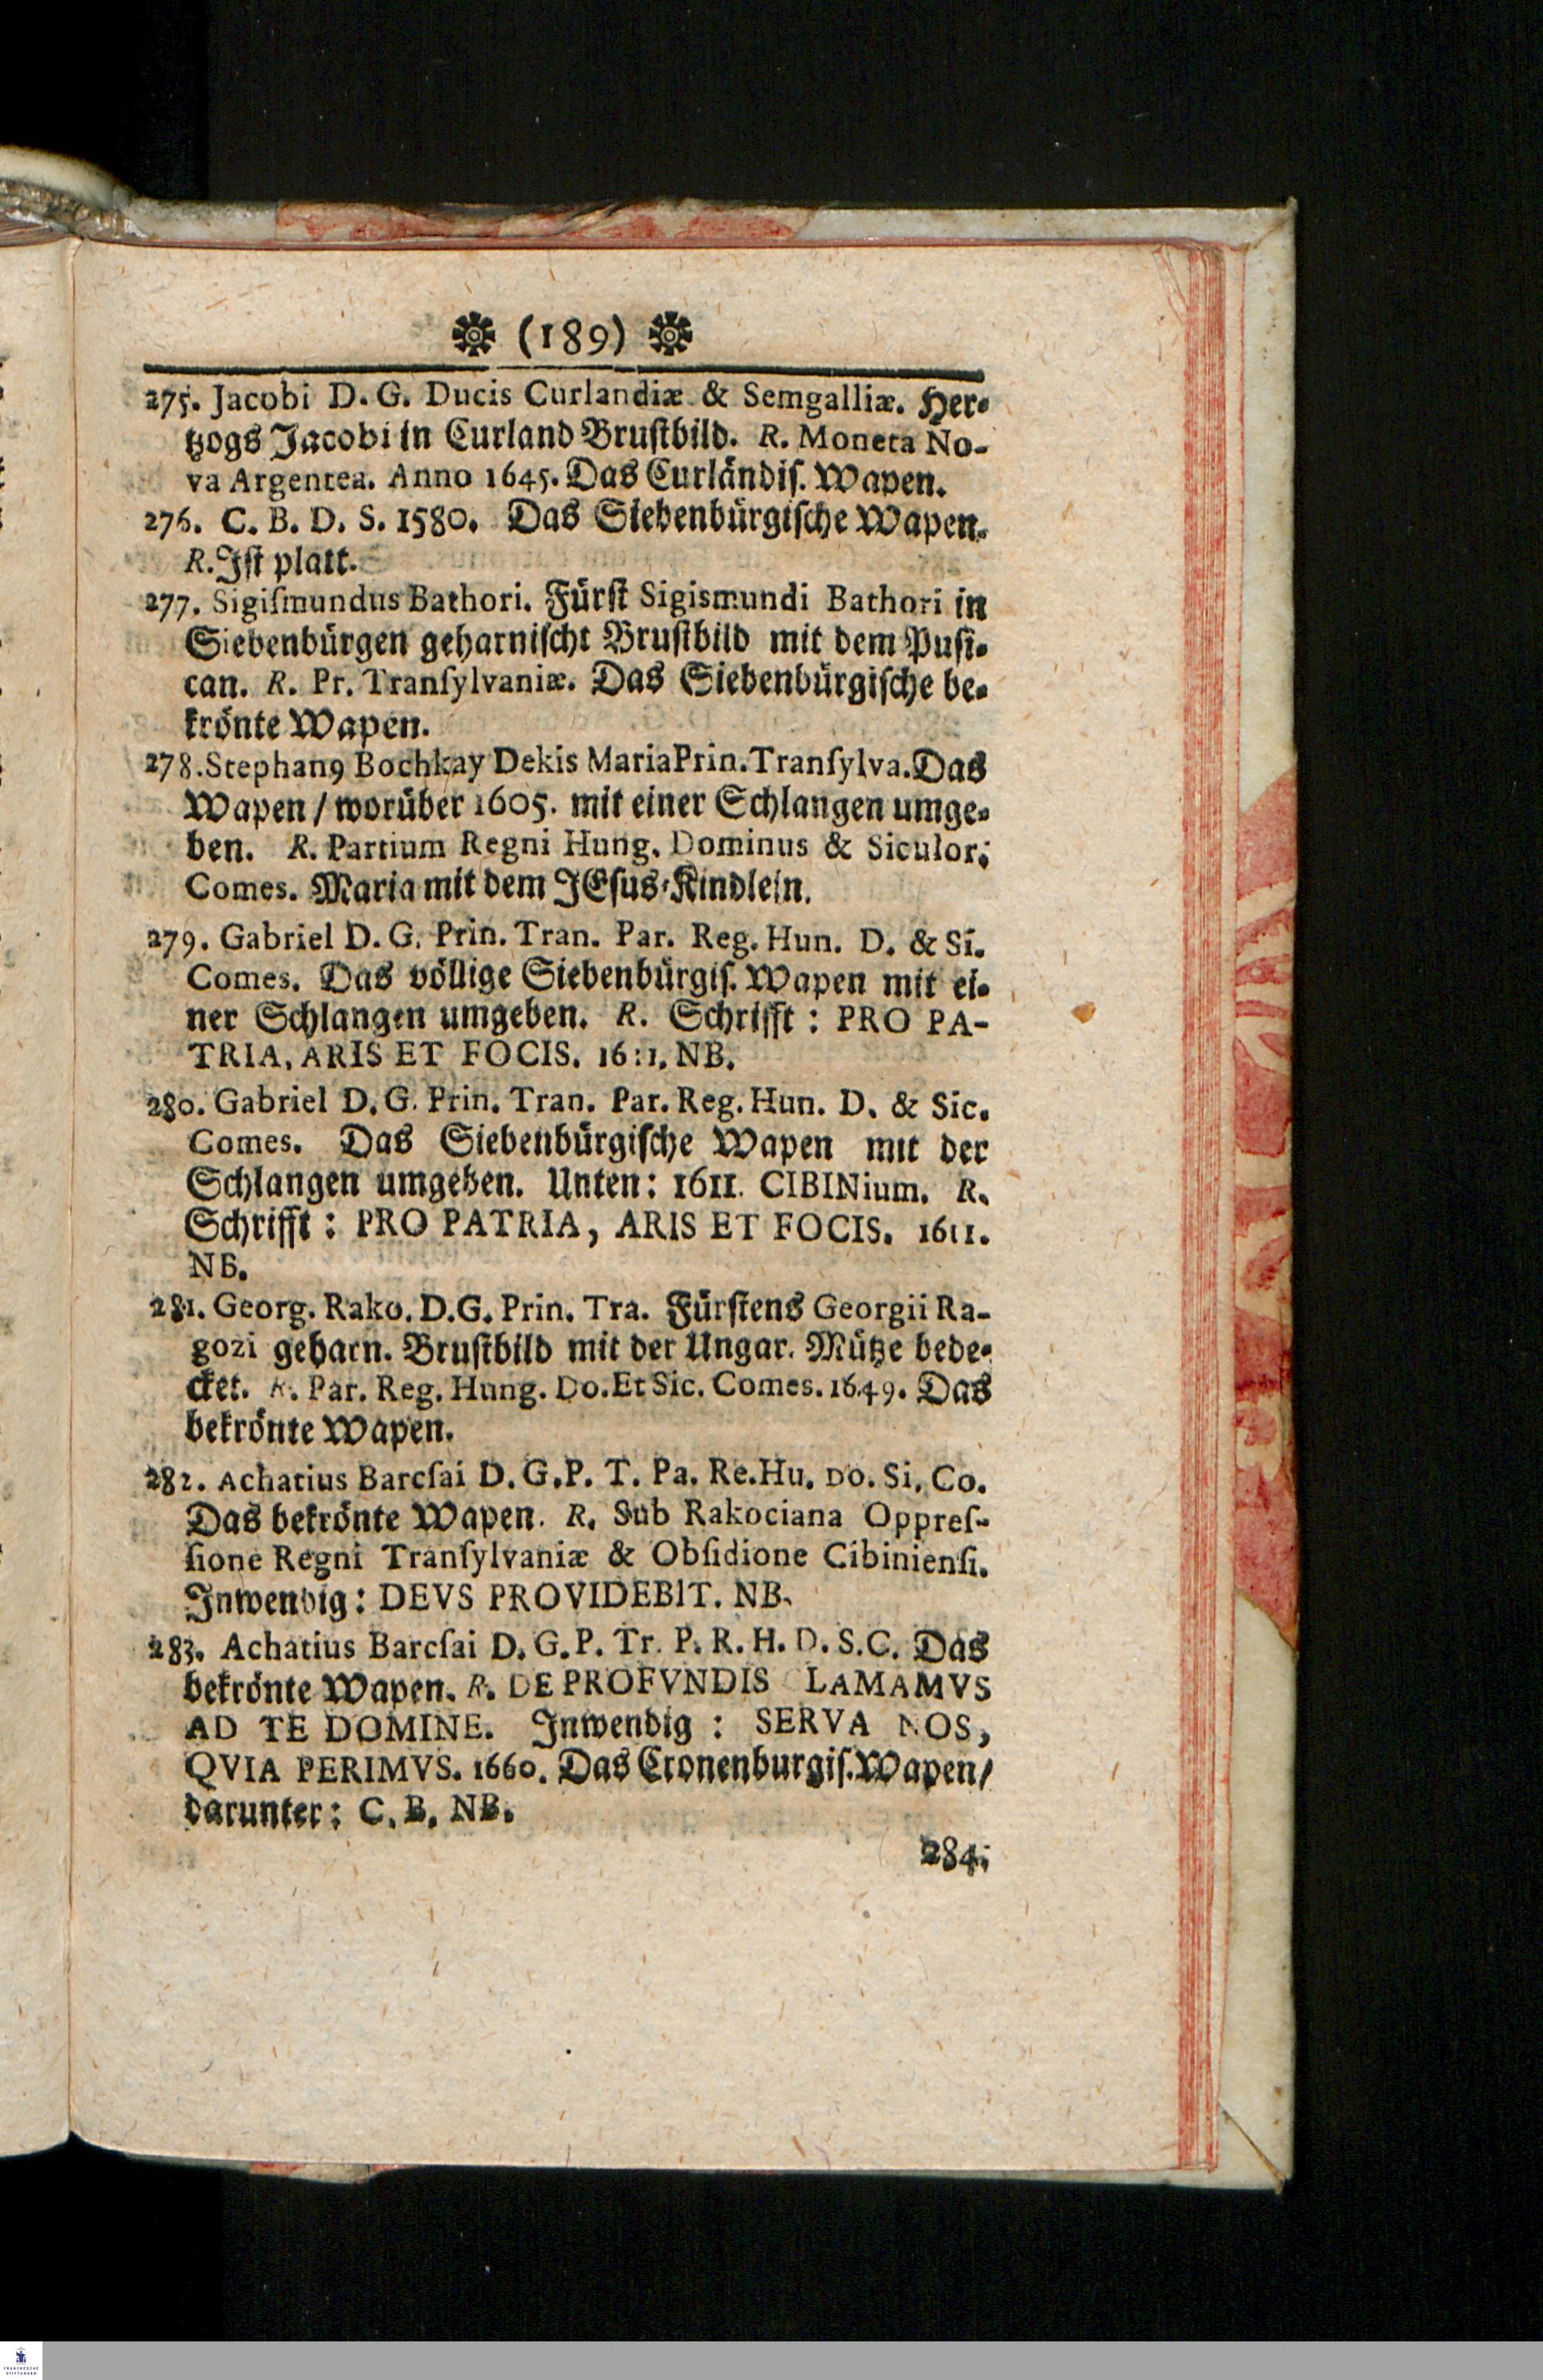 ❋ (189) ❋
275. Jacobi D. G. Ducis Curlandiæ & Semgalliæ. Her-
tzogs Jacobi in Curland Bruſtbild. R. Moneta No-
va Argentea. Anno 1645. Das Curländiſ. Wapen.
276. C. B. D. S. 1580. Das Siebenbürgiſche Wapen.
R. Iſt platt.
277. Sigiſmundus Bathori. Fürſt Sigismundi Bathori in
Siebenbürgen geharniſcht Bruſtbild mit dem Puſi-
can. R. Pr. Tranſylvaniæ. Das Siebenbürgiſche be-
krönte Wapen.
278. Stephan9 Bochkay Dekis Maria Prin. Tranſylva. Das
Wapen / worüber 1605. mit einer Schlangen umge-
ben. R. Partium Regni Hung. Dominus & Siculor.
Comes. Maria mit dem JEſus-Kindlein.
279. Gabriel D. G. Prin. Tran. Par. Reg. Hun. D. & Si.
Comes. Das völlige Siebenbürgiſ. Wapen mit ei-
ner Schlangen umgeben. R. Schrifft : PRO PA-
TRIA, ARIS ET FOCIS. 1611. NB.
280. Gabriel D. G. Prin. Tran. Par. Reg. Hun. D. & Sic.
Comes. Das Siebenbürgiſche Wapen mit der
Schlangen umgeben. Unten: 1611. CIBINium. R.
Schrifft : PRO PATRIA, ARIS ET FOCIS. 1611.
NB.
281. Georg. Rako. D.G. Prin. Tra. Fürſtens Georgii Ra-
gozi geharn. Bruſtbild mit der Ungar. Mütze bede-
cket. R. Par. Reg. Hung. Do. Et Sic. Comes. 1649. Das
bekrönte Wapen.
282. Achatius Barcſai D. G. P. T. Pa. Re. Hu. Do. Si. Co.
Das bekrönte Wapen. R. Sub Rakociana Oppreſ-
ſione Regni Tranſylvaniæ & Obſidione Cibinienſi.
Inwendig: DEVS PROVIDEBIT. NB.
283. Achatius Barcſai D. G. P. Tr. P. R. H. D. S. C. Das
bekrönte Wapen. R. DE PROFVNDIS LAMAMVS
AD TE DOMINE. Inwendig : SERVA NOS,
QVIA PERIMVS. 1660. Das Cronenburgiſ. Wapen /
darunter: C. B. NB.
284.
FRANCKESCHE
STIFTUNGEN